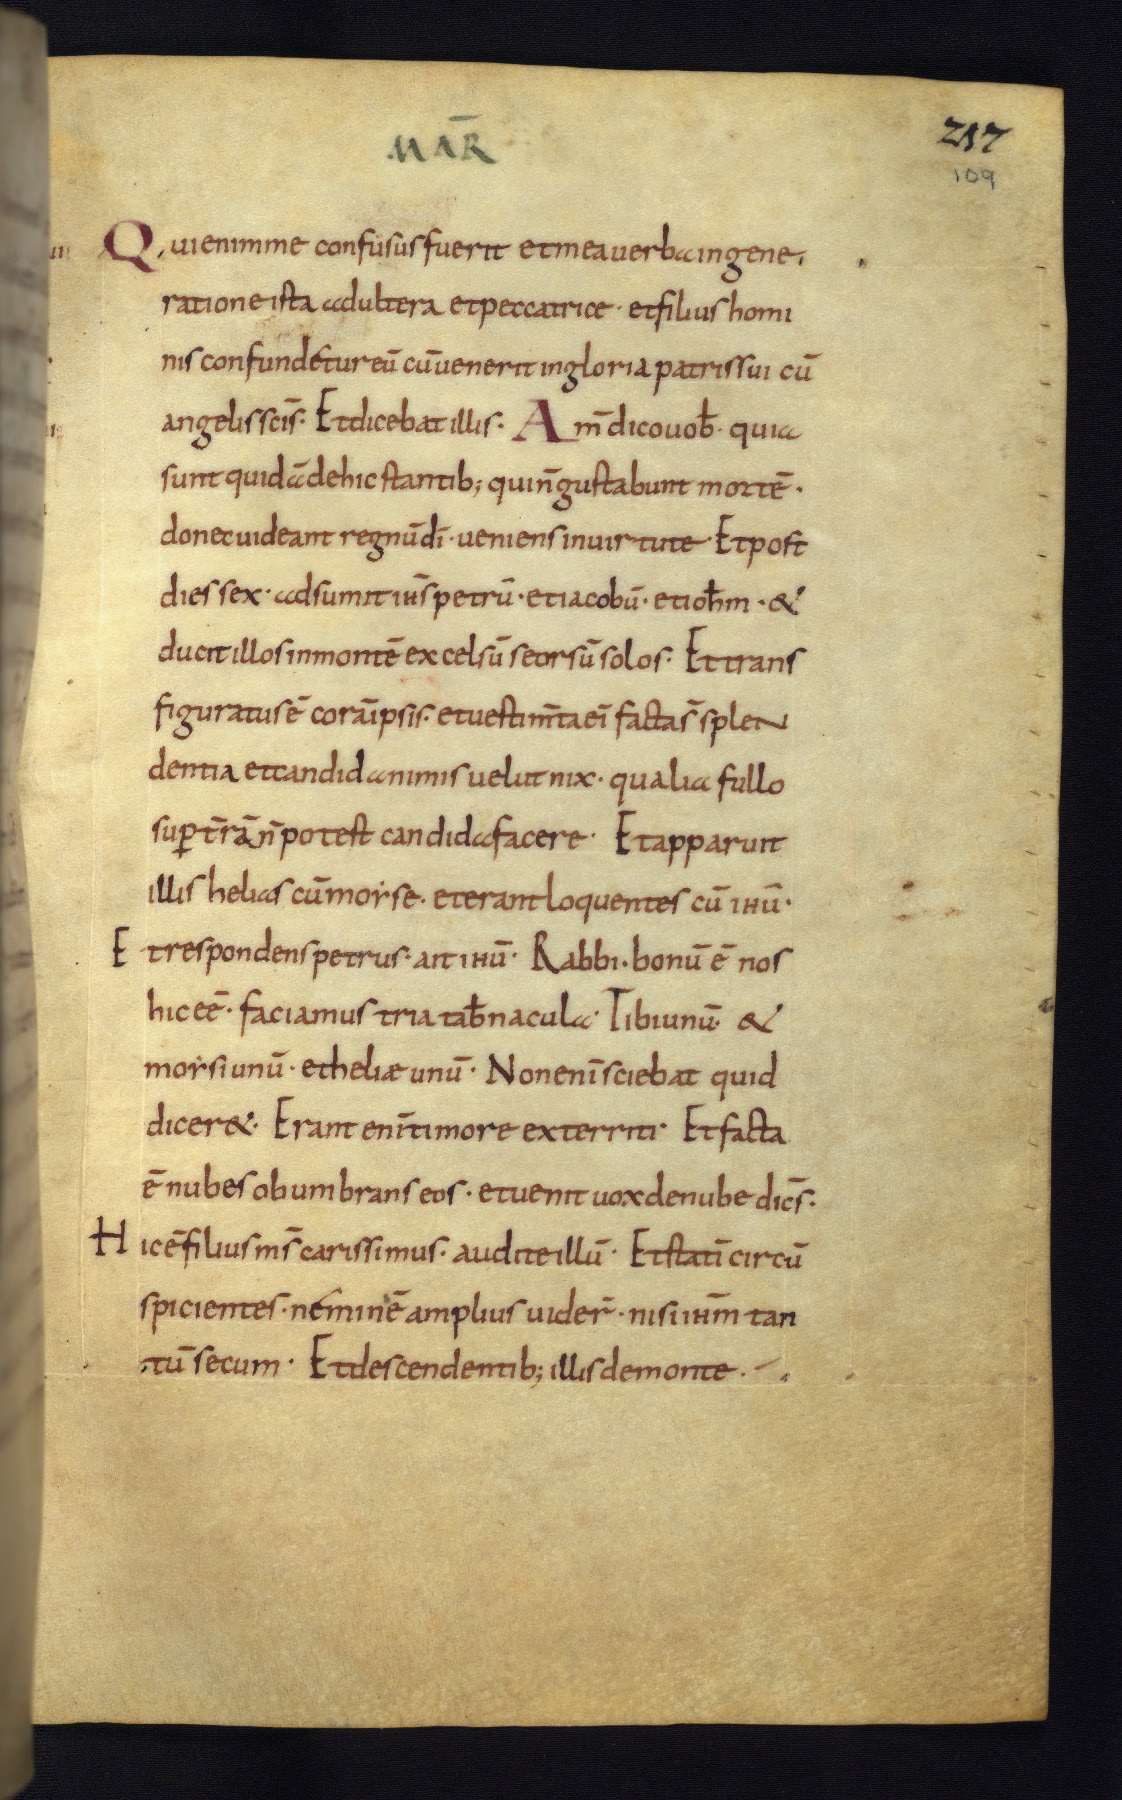 MAR̄
217
109
Qui enim me confusus fuerit et mea uerba in gene
ratione ista adultera et peccatrice · et filius homi
nis confundetur eū cū uenerit in gloria patris sui cū
angelis sc̄is · Et dicebat illis · Am̄ dico uob̄ · quia
sunt quidā de hic stantib; qui n̄ gustabunt mortē ·
donec uideant regnū dī · ueniens in uirtute · Et post
dies sex · adsumit ih̄s petrū · et iacobū · et ioh̄m · &
ducit illos in montē excelsū seorsū solos · Et trans
figuratus ē corā ipsis · et uestim̄ta eī facta s̄ splen
dentia et candida nimis uelut nix · qualia fullo
sup̄ t̄rā n̄ potest candida facere · Et apparuit
illis helias cū moyse · et erant loquentes cū ihū ·
Et respondens petrus · ait ihū · Rabbi · bonū ē nos
hic eē · faciamus tria tab̄nacula · Tibi unū · &
moysi unū · et heliæ unū · Non enī sciebat quid
dicer& · Erant enī timore exterriti · Et facta
ē nubes obumbrans eos · et uenit uox de nube dic̄s ·
Hic ē filius ms̄ carissimus · audite illū · Et statī circū
spicientes · neminē amplius uider̄ · nisi ihm̄ tan
tū secum · Et descendentib; illis de monte ·